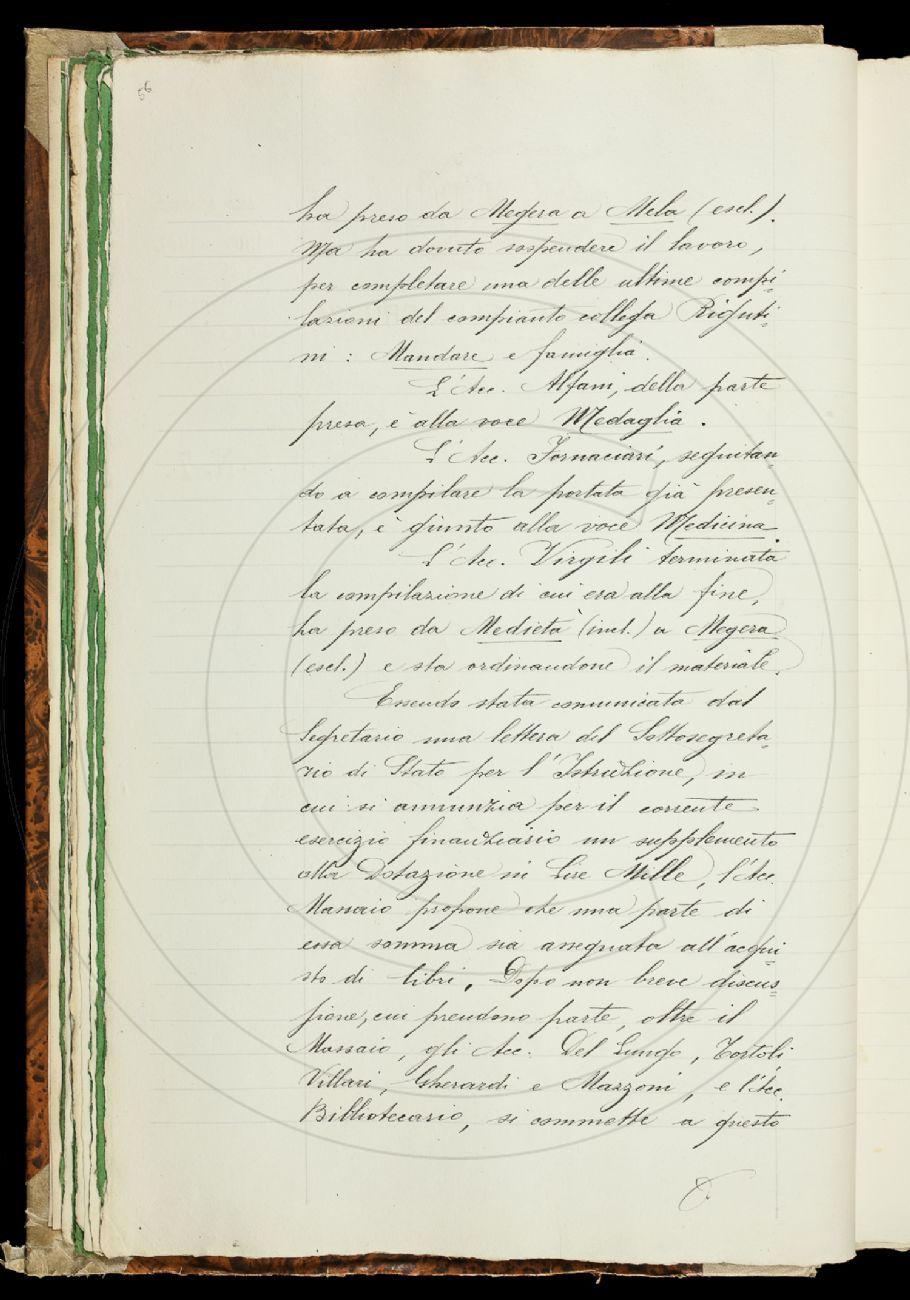 56
ha preso da Megera a Mela (escl.).
Ma ha dovuto sospendere il lavoro,
per completare una delle ultime compi-
lazioni del compianto collega Riguti-
ni: Mandare e famiglia.
L'Acc. Alfani, della parte
presa, è alla voce Medaglia.
L'Acc. Fornaciari, seguitan-
do a compilare la portata già presen-
tata, è giunto alla voce Medicina.
L'Acc. Virgili terminata
la compilazione di cui era alla fine,
ha preso da Medietà (incl.) a Megera
(escl.) e sta ordinandone il materiale.
Essendo stata comunicata dal
Segretario una lettera del Sottosegreta-
rio di Stato per l'Istruzione, in
cui si annunzia per il corrente
esercizio finanziario un supplemento
alla Dotazione in Lire Mille, l'Acc.
Massaio propone che una parte di
essa somma sia assegnata all'acqui-
sto di libri. Dopo non breve discus-
sione, cui prendono parte, oltre il
Massaio, gli Acc. Del Lungo, Tortoli
Villari, Gherardi e Mazzoni, e l'Acc.
Bibliotecario, si commette a questo